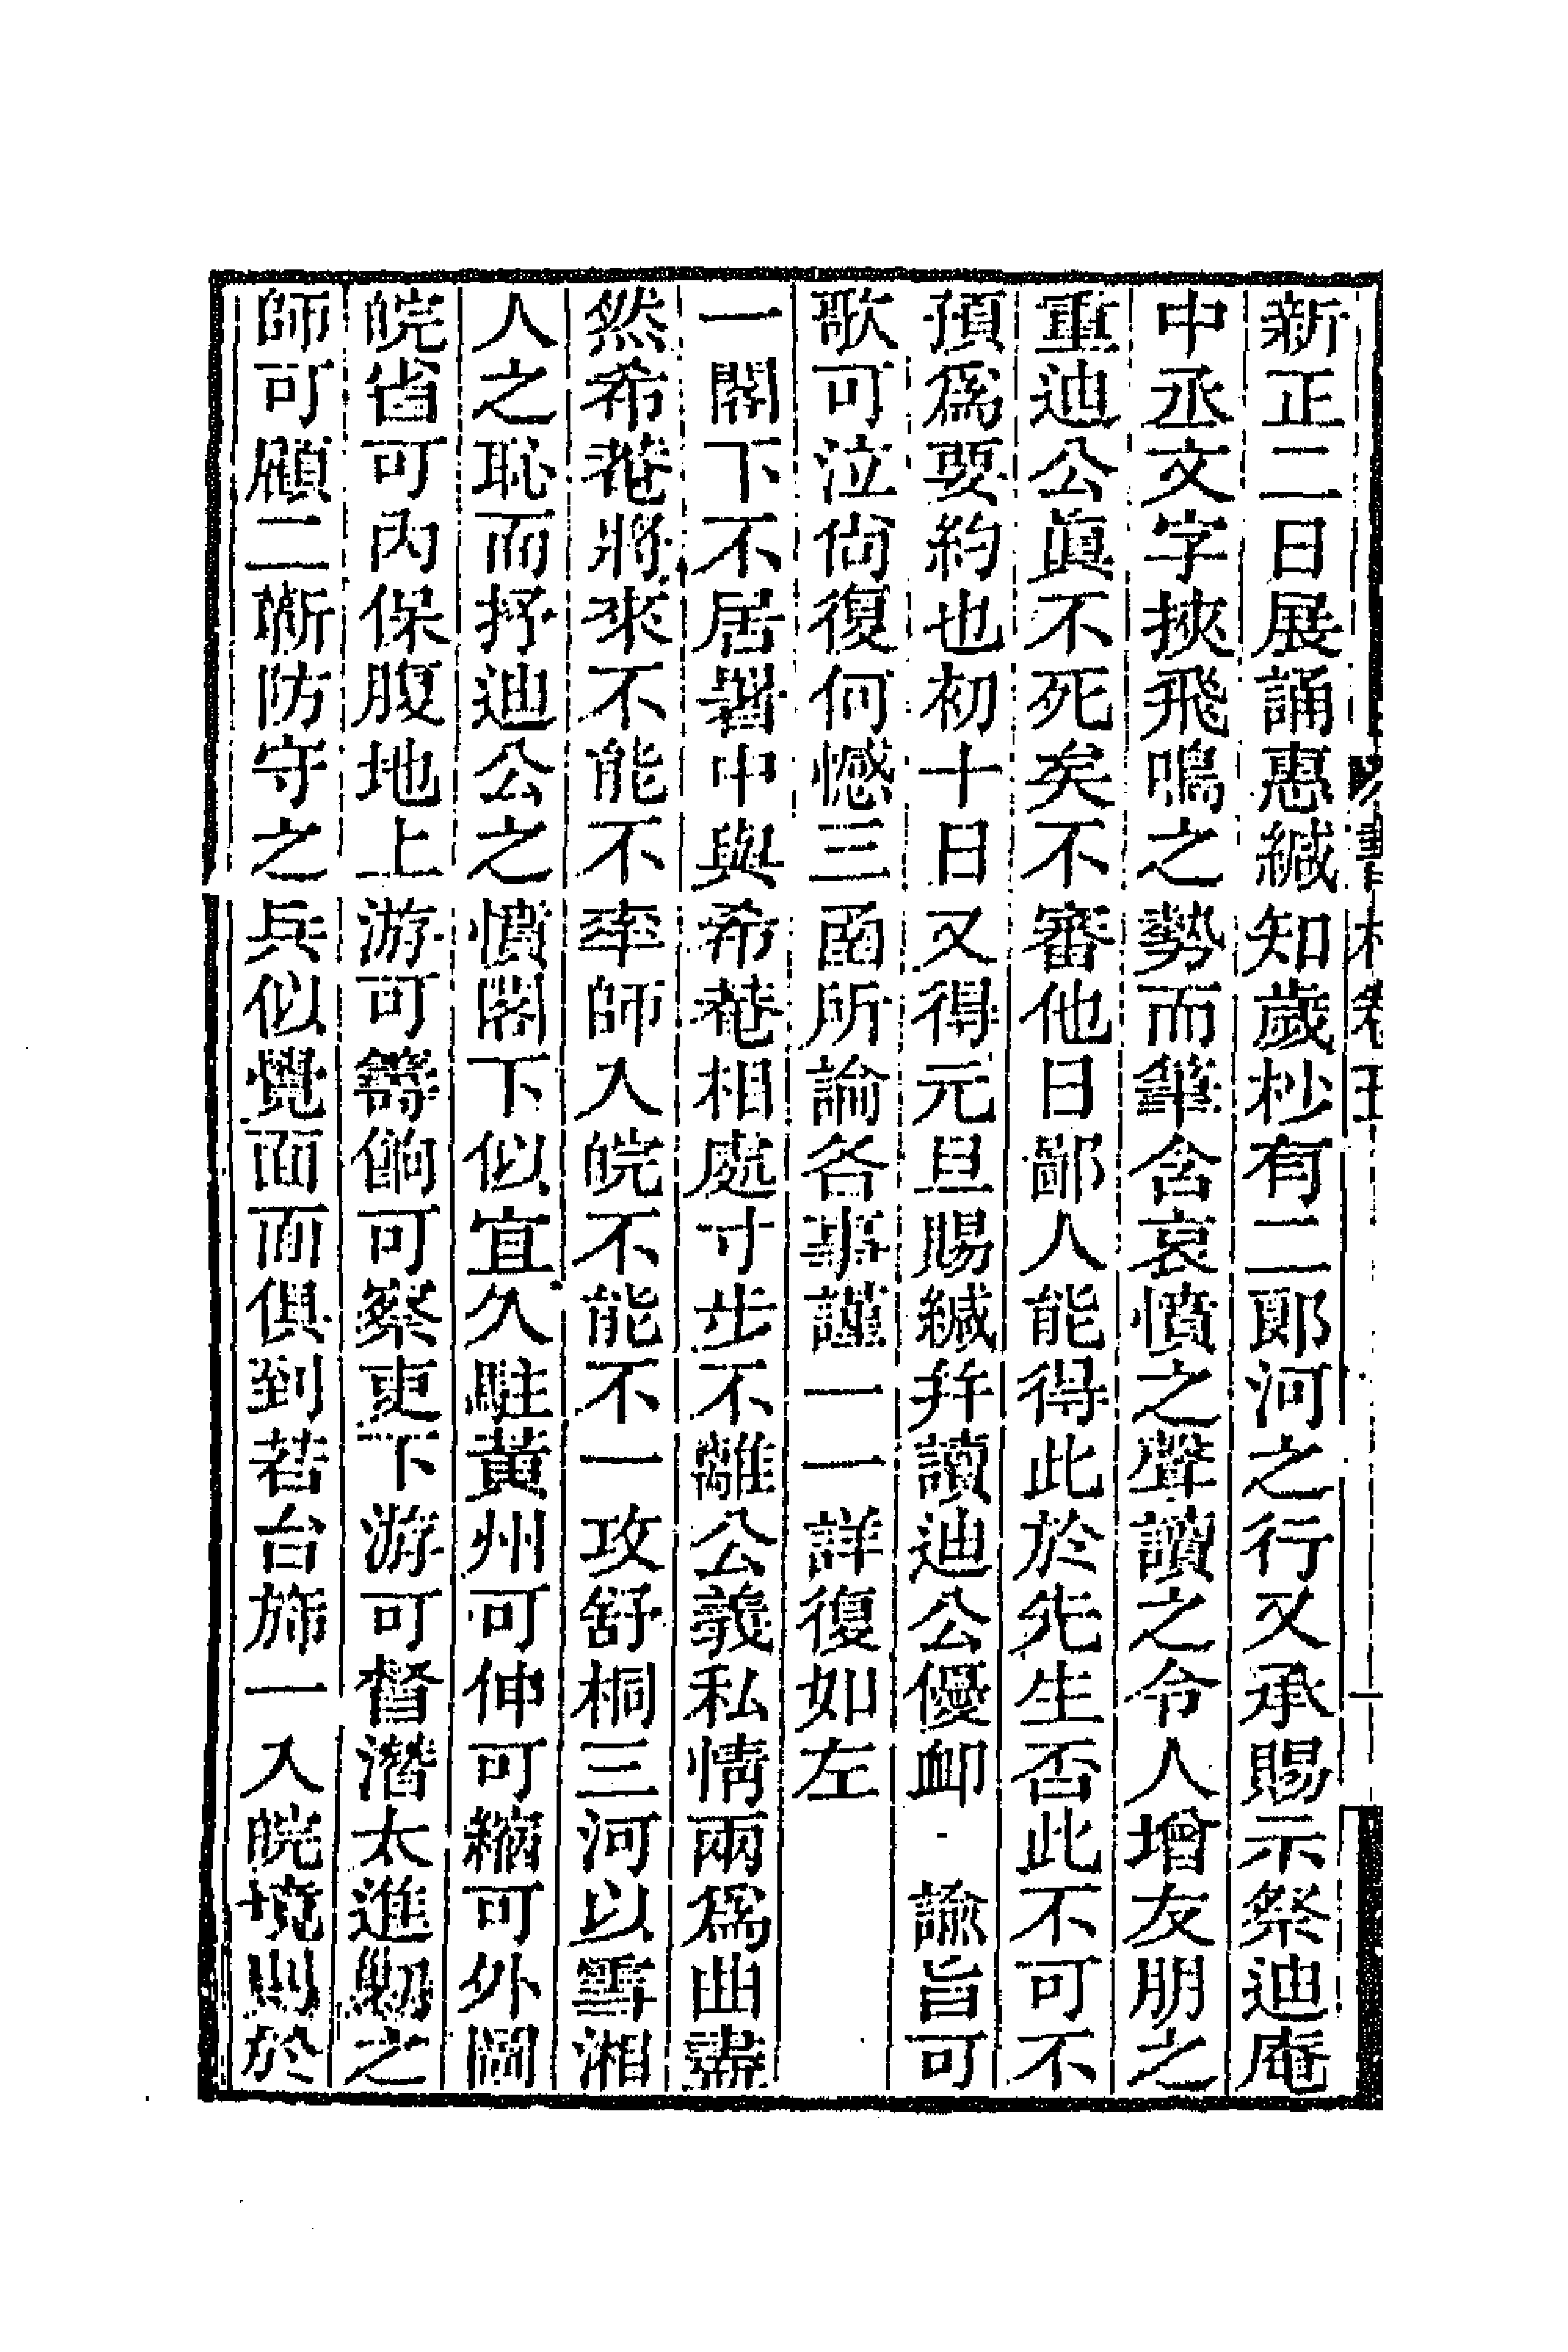 新正二日展誦惠緘知歲杪有二郞河之行又承賜示祭迪庵
中丞文字挾飛鳴之勢而筆含哀憤之聲讀之令人增友朋之
重迪公眞不死矣不審他日鄙人能得此於先生否此不可不
預爲要約也初十日又得元旦賜緘幷讀迪公優卹 諭旨可
歌可泣尙復何憾三函所論各事謹一一詳復如左
一閣下不居署中與希菴相處寸步不離公義私情兩爲曲盡
然希菴將來不能不率師入皖不能不一攻舒桐三河以雪湘
人之恥而抒迪公之憤閣下似宜久駐黃州可伸可縮可外圖
皖省可內保腹地上游可籌餉可察吏下游可督潛太進勦之
師可顧二蘄防守之兵似覺面面俱到若台旆一入皖境則於